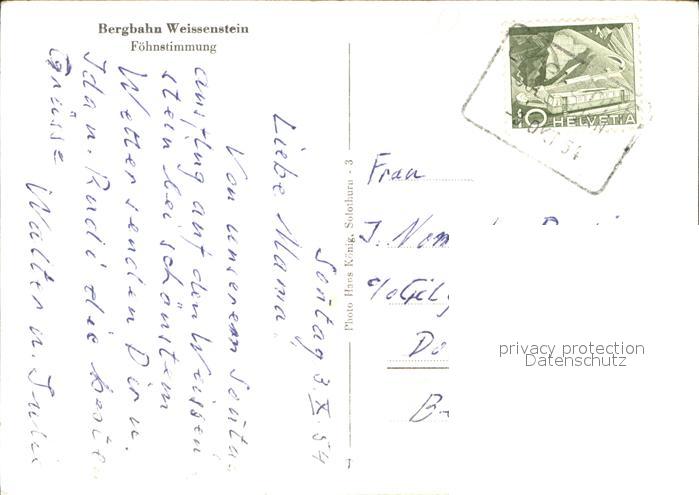 Bergbahn Weissenstein
Föhnstimmung
Sontag 3. X. 54
Liebe Mama.
Von unserem Sonta
ausflug auf den Weissen
stein bei schönstem
Wetter senden Dir u.
Ida u. Rudi die besten
Grüsse Walter u.
Photo Hans König, Solothurn - 3
Frau
J.
10 HELVETIA
OKT 54
privacy protection
Datenschutz